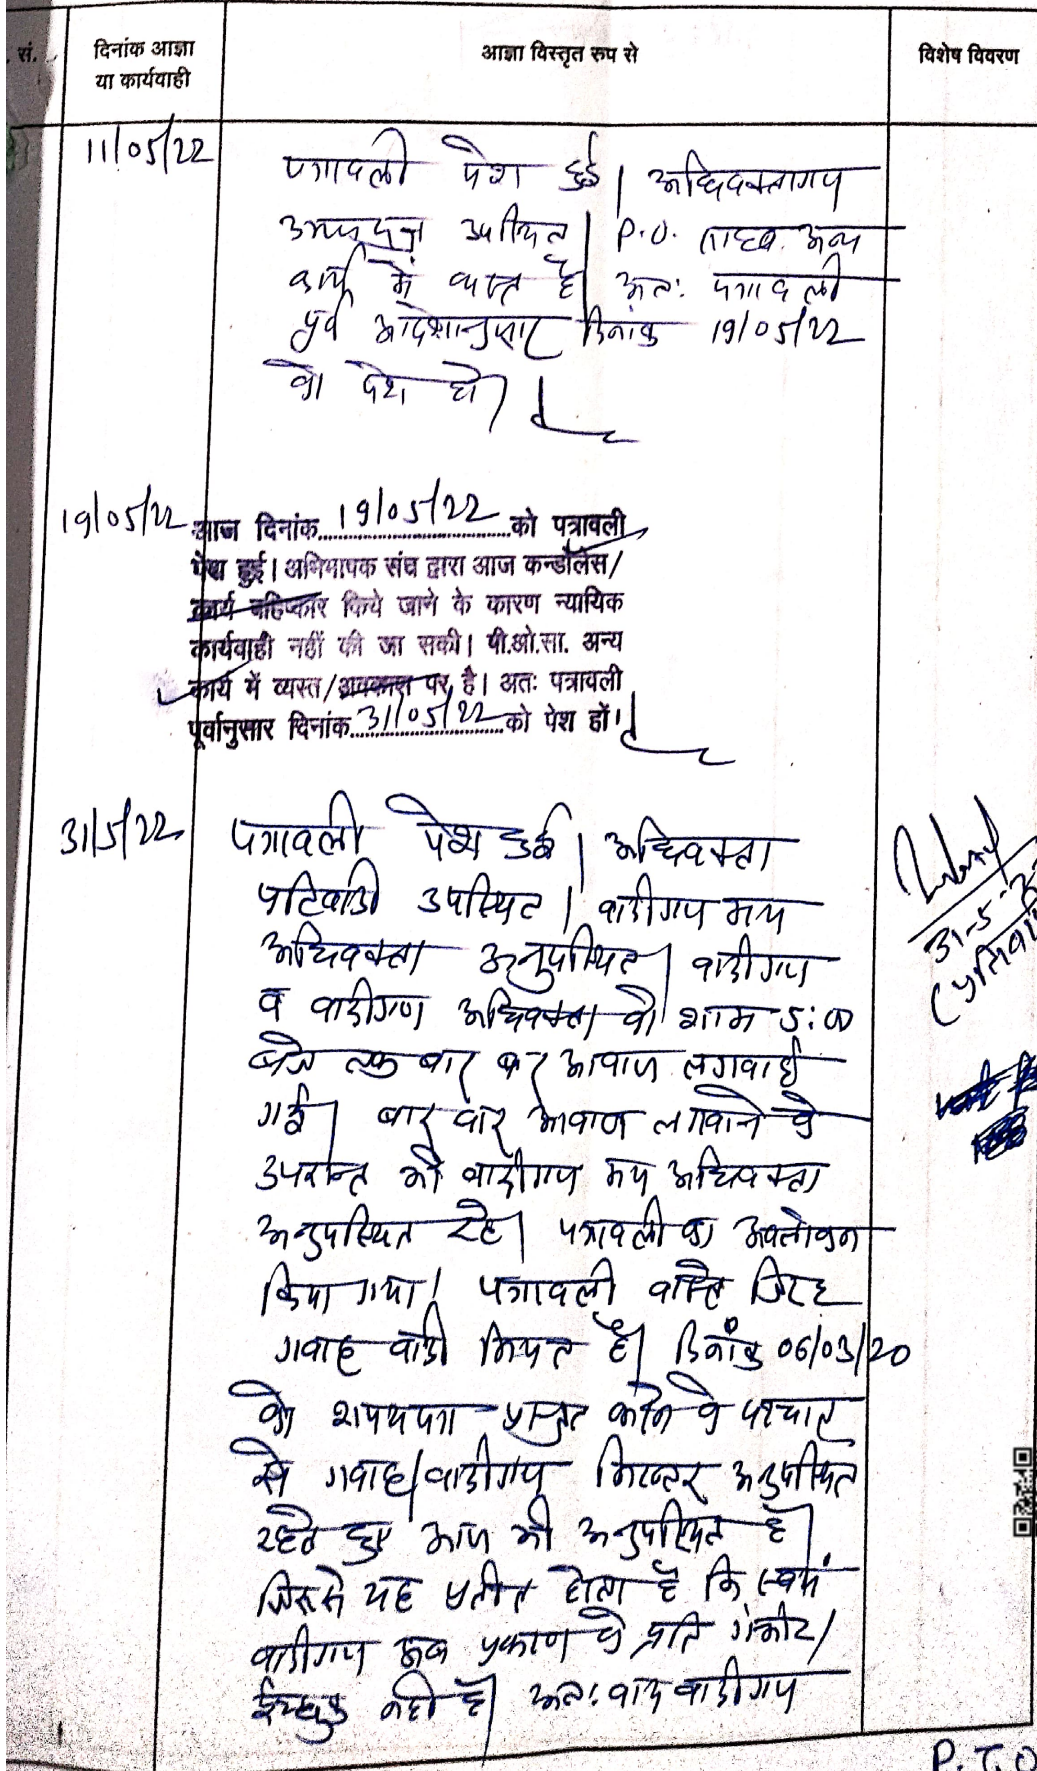 सं.
दिनांक आज्ञा
या कार्यवाही
आज्ञा विस्तृत रुप से
विशेष विवरण
11/05/22
पत्रावली पेश हुई। अधिवक्तागण
उभयपक्ष उपस्थित। P.O. साहब अन्य
कार्य में व्यस्त है। अतः पत्रावली
पूर्व आदेशानुसार दिनांक 19/05/22
को पेश हो।
19/05/22
आज दिनांक 19/05/22 को पत्रावली
पेश हुई। अभिभाषक संघ द्वारा आज कन्डोलेंस/
कार्य बहिष्कार किये जाने के कारण न्यायिक
कार्यवाही नहीं की जा सकी। पी.ओ.सा. अन्य
कार्य में व्यस्त/अवकाश पर है। अतः पत्रावली
पूर्वानुसार दिनांक 31/05/22 को पेश हों।
31/5/22
पत्रावली पेश हुई। अधिवक्ता
प्रतिवादी उपस्थित। वादीगण मय
अधिवक्ता अनुपस्थित। वादीगण
व वादीगण अधिवक्ता को शाम 5:00
बजे तक बार बार आवाज लगवाई
गई। बार बार आवाज लगवाने के
उपरान्त भी वादीगण मय अधिवक्ता
अनुपस्थित रहे। पत्रावली का अवलोकन
किया गया। पत्रावली वास्ते जिरह
गवाह वादी नियत है। दिनांक 06/03/20
को शपथपत्र प्रस्तुत करने के पश्चात
से गवाह/वादीगण निरन्तर अनुपस्थित
रहते हुए आज भी अनुपस्थित है।
जिससे यह प्रतीत होता है कि स्वयं
वादीगण प्रकरण के प्रति गंभीर/
ईच्छुक नही है। अतः वाद वादीगण
31-5-2
(प्रतिवा
P.T.O